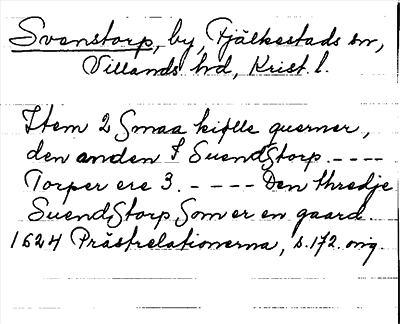 Svenstorp, by, Fjälkestads sn,
Villands hd, Krist. l.
Item 2 Smaa kiplle querner,
den anden I SuendStorp. ----
Torper ere 3. ---- Den thredje
SuendStorp Som er en gaard.
1624 Prästrelationerna, s. 172. orig.